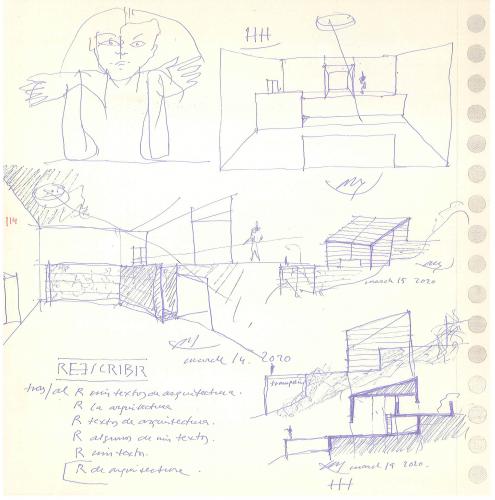 114
march 15 2020
march 14. 2020
REESCRIBIR
R mis textos de arquitectura.
R la arquitectura
R textos de arquitectura.
R algunos de mis textos.
R mis textos.
R de arquitectura.
march 19 2020.